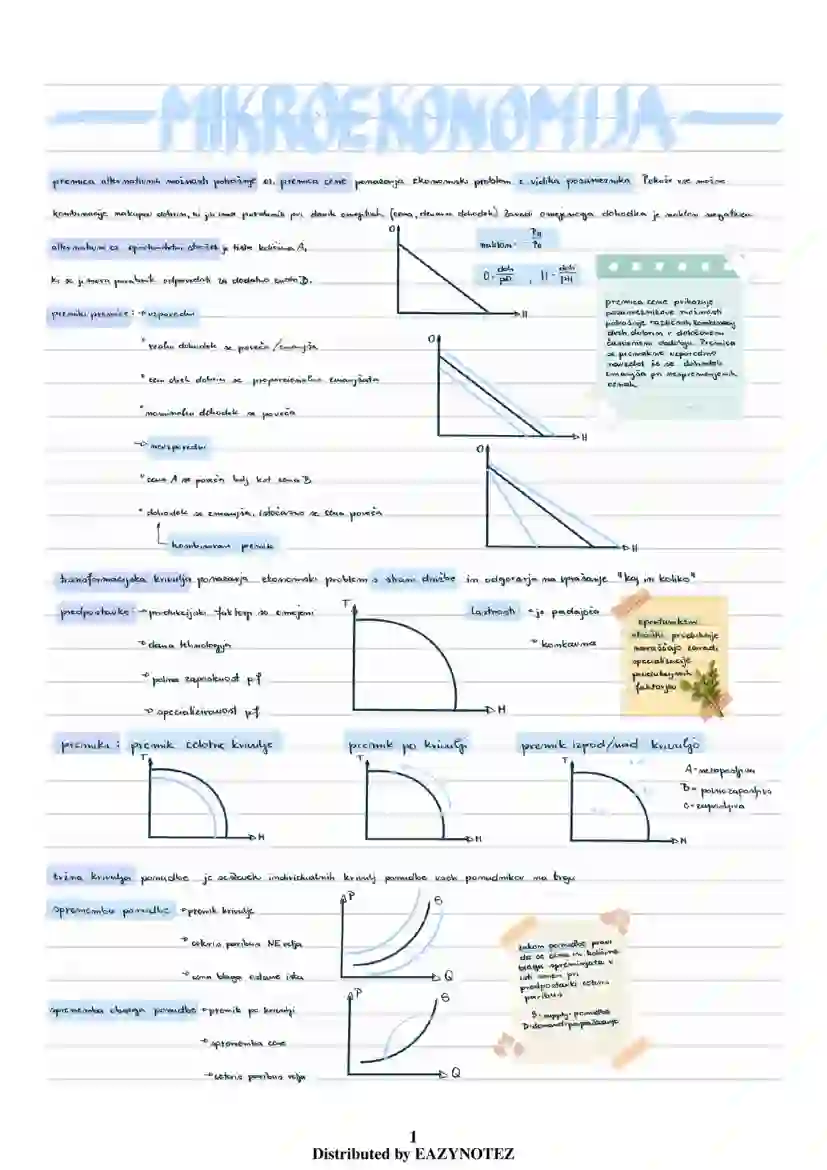 MIKROEKONOMIJA
premica alternativnih možnosti potrošnje oz. premica cene ponazarja ekonomski problem z vidika posameznika. Pokaže vse možne
kombinacije nakupov dobrin, ki jih ima potrošnik pri danih omejitvah (cena, denarni dohodek) Zaradi omejenega dohodka je naklon negativen
alternativni oz. oportunitetni strošek je tista količina A,
ki se ji mora potrošnik odpovedati za dodatno enoto B.
O
H
naklon = PH / PO
O = doh / pO , H = doh / pH
premica cene prikazuje
posameznikove možnosti
potrošnje različnih kombinacij
dveh dobrin v določenem
časovnem obdobju. Premica
se premakne vzporedno
navzdol če se dohodek
zmanjša pri nespremenjenih
cenah
premiki premice: → vzporedni
* realni dohodek se poveča/zmanjša
* cen dveh dobrin se proporcionalno zmanjšata
* nominalni dohodek se poveča
O
H
→ nevzporedni
* cena A se poveča bolj kot cena B
* dohodek se zmanjša, istočasno se cena poveča
kombiniran premik
O
H
transformacijska krivulja ponazarja ekonomski problem s strani družbe in odgovarja na vprašanje "kaj in koliko"
predpostavke: → produkcijski faktorji so omejeni
→ dana tehnologija
→ polna zaposlenost p.f
→ specializiranost p.f
T
H
lastnosti → je padajoča
→ konkavna
oportunitetni
stroški produkcije
naraščajo zaradi
specializacije
produkcijskih
faktorjev
premika: premik celotne krivulje
premik po krivulji
premik izpod/nad krivuljo
T
H
T
H
T
H
A = nezaposljiva
B = polno zaposljiva
C = zaposljiva
tržna krivulja ponudbe je seštevek individualnih krivulj ponudbe vseh ponudnikov na trgu
sprememba ponudbe → premik krivulje
→ ceteris paribus NE velja
→ cena blaga ostane ista
P
S
Q
sprememba obsega ponudbe → premik po krivulji
→ sprememba cene
→ ceteris paribus velja
P
S
Q
zakon ponudbe pravi
da se cena in količina
blaga spreminjata v
isti smeri pri
predpostavki ceteris
paribus
S - supply - ponudba
D - demand - povpraševanje
1
Distributed by EAZYNOTEZ